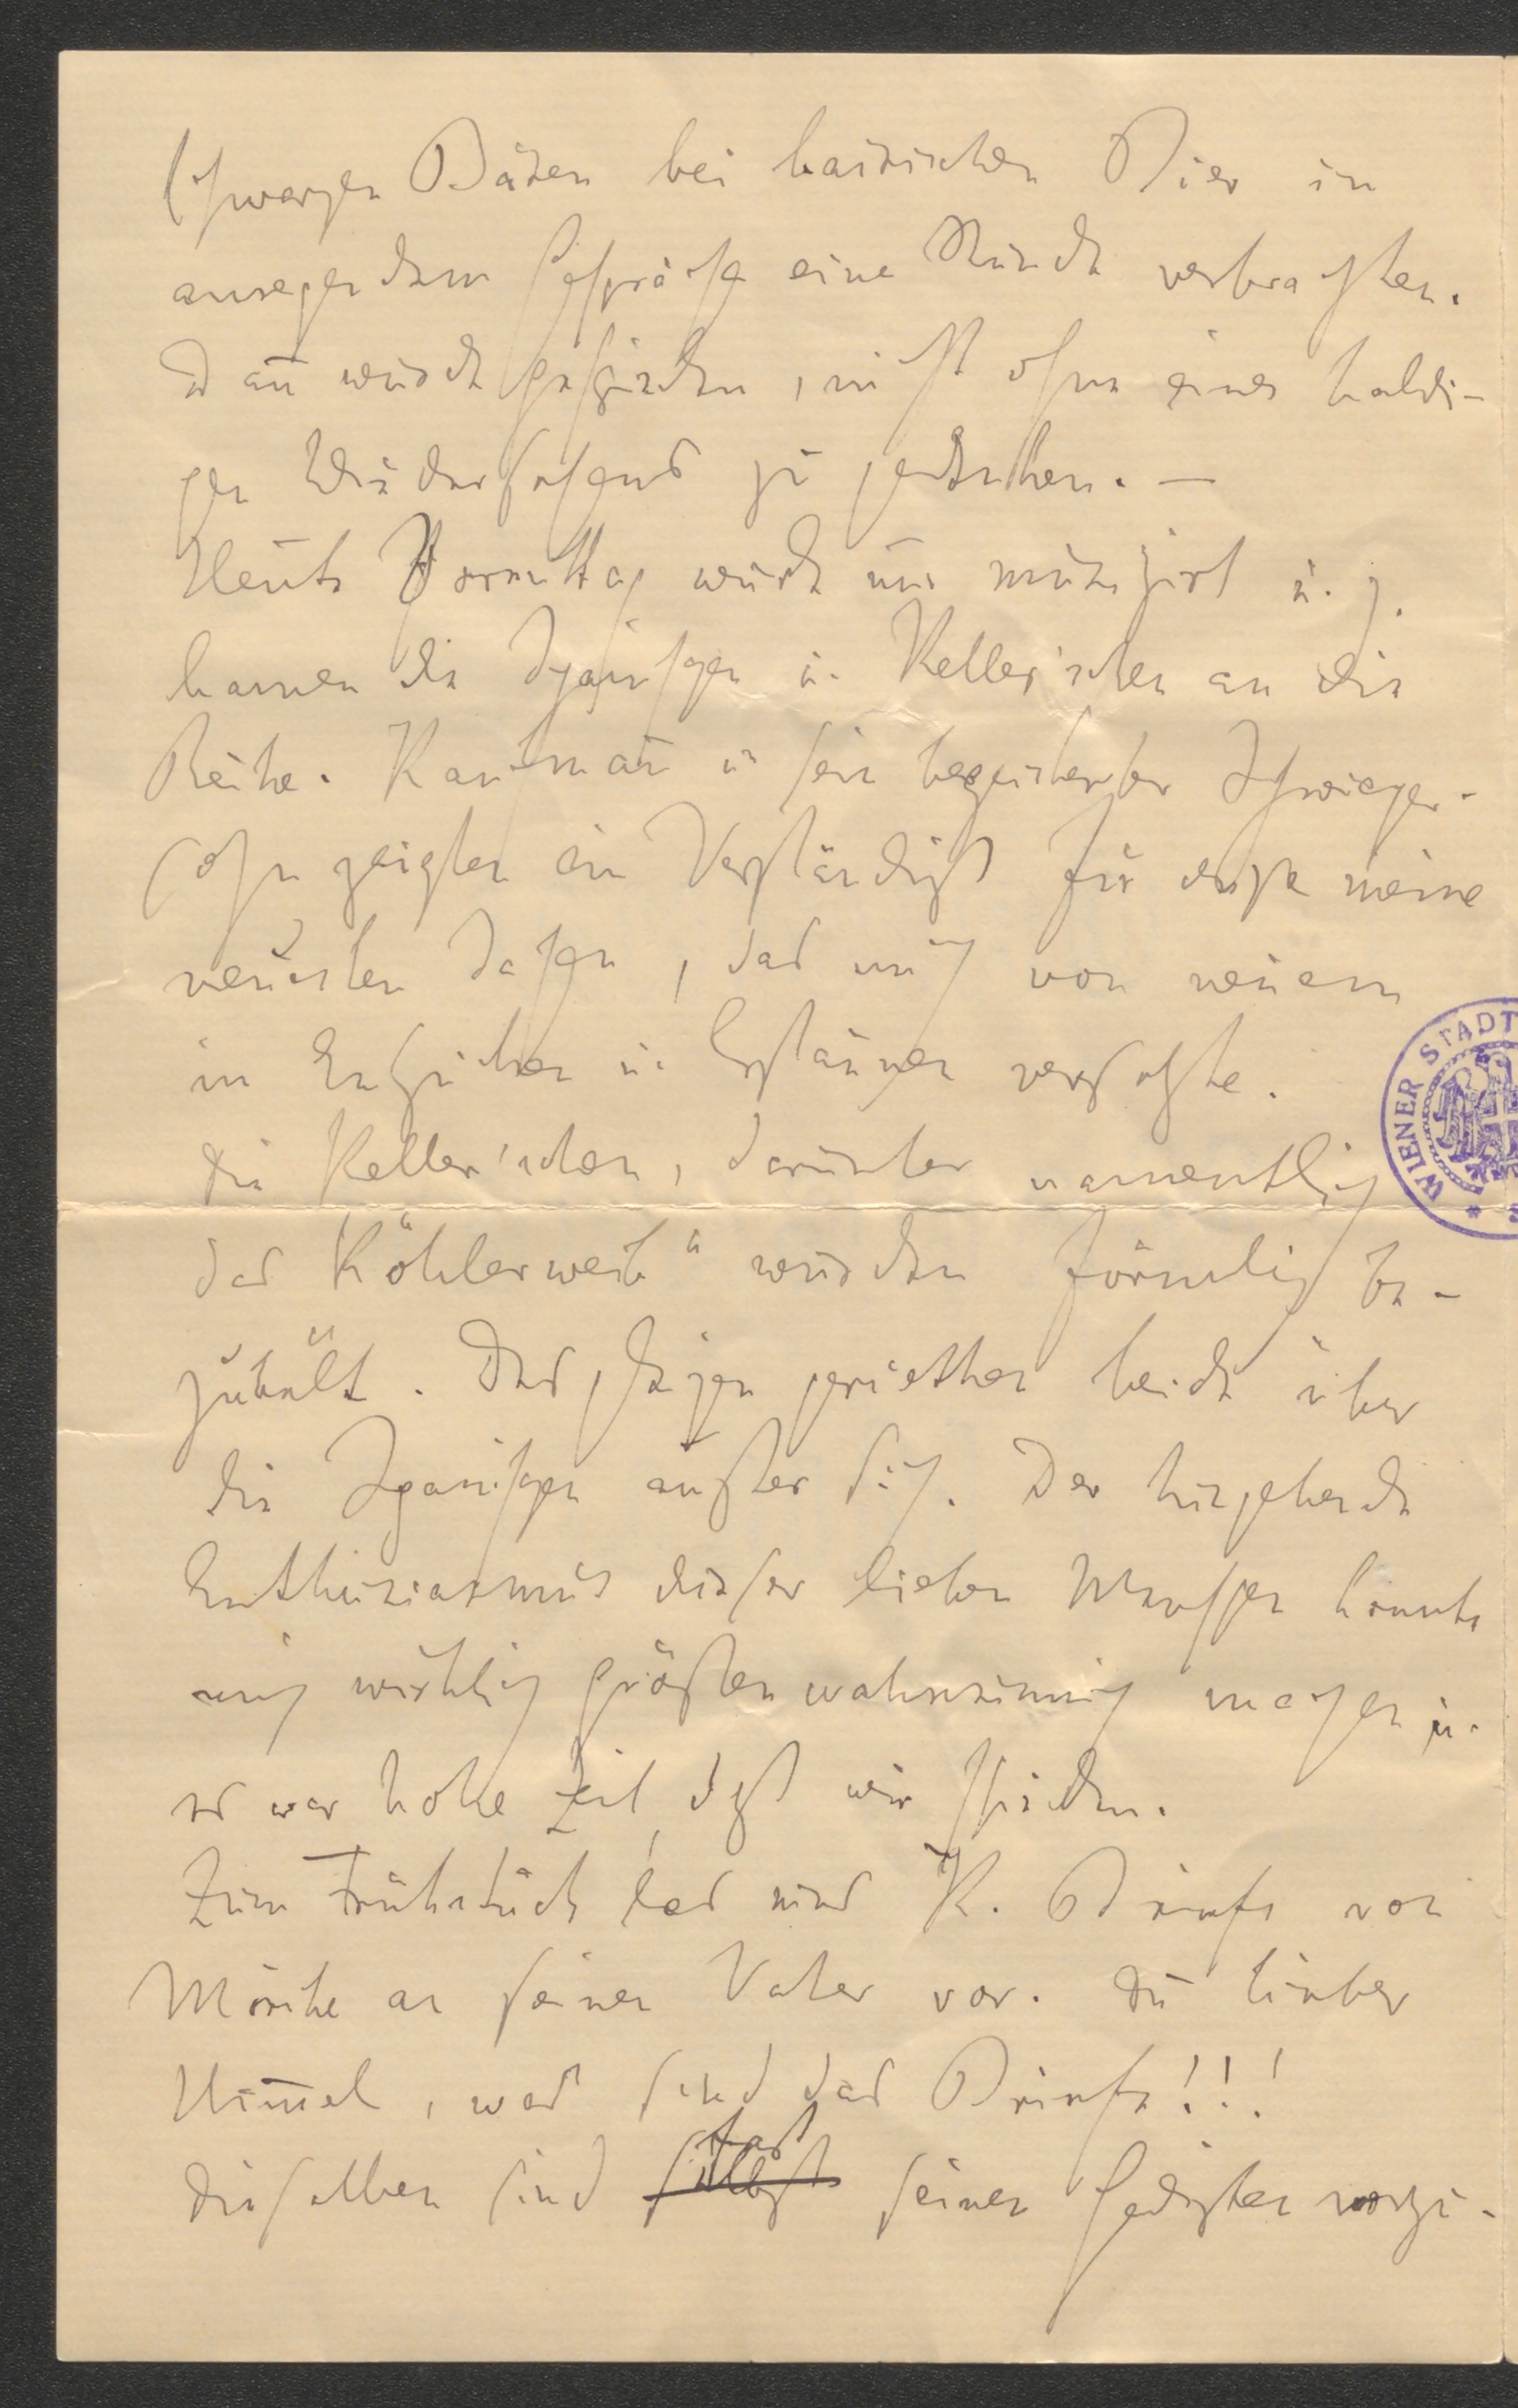 schwarzen Bären bei bairischen Bier in
anregendem Gespräche eine Stunde verbrachten.
Dañ wurde geschieden, nicht ohne eines baldi-
gen Wiedersehens zu gedenken. —
Heute Vormittag wurde nur musizirt u. z.
kamen die Spanischen u. Keller'schen an die
Reihe. Kaufmañ u sein begeisterter Schwieger-
sohn zeigten ein Verständniß für diese meine
neuesten Sachen, das mich von neuem
in Entzücken u. Erstaunen versetzte.
Die Keller'schen, darunter namentlich
das Köhlerweib" wurden förmlich be-
jubelt. Desgleichen geriethen beide über
die Spanischen außer sich. Der hingehende
Enthusiasmus dieser lieben Menschen könnte
mich wirklich größenwahnsinnig machen u.
es war hohe Zeit, daß wir schieden.
Zum Frühstück las uns K. Briefe von
Mörike an seinen Vater vor. Du lieber
Him̄el, was sind das Briefe!!!
Dieselben sind fast selbst seinen Gedichten vorzu-
WIENER STADT